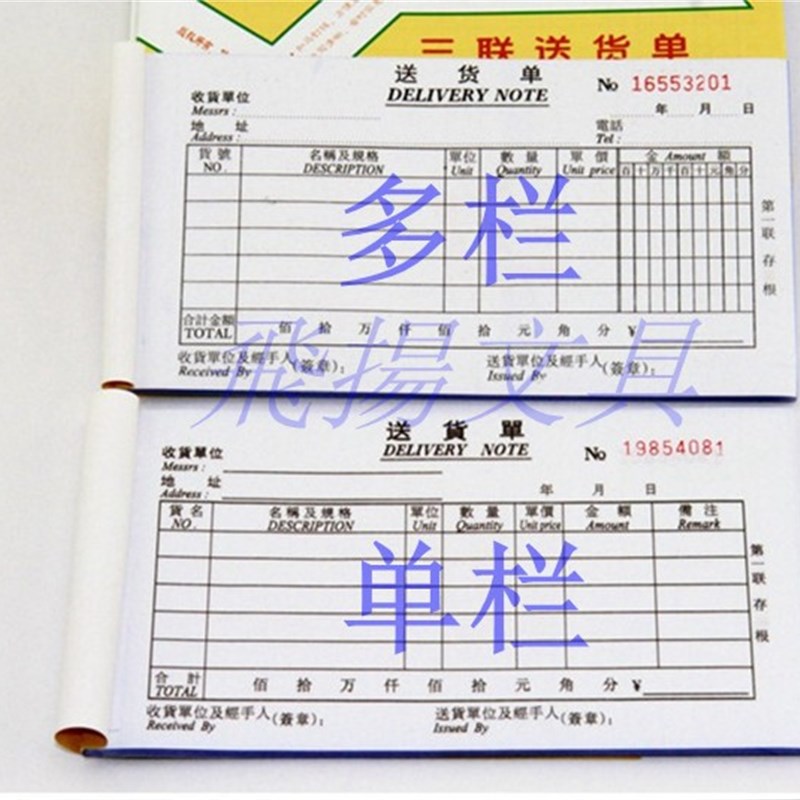 三联送货单
送货单
DELIVERY NOTE
No 16553201
收貨單位
Messrs :
年 月 日
地 址
Address :
電話
Tel :
貨號 名稱及規格 單位 數量 單價 金 Amount 額
NO. DESCRIPTION Unit Quantity Unit price 百 十 万 千 百 十 元 角 分
多栏
第一联存根
合計金額 佰 拾 万 仟 佰 拾 元 角 分 ¥
TOTAL
飛揚文具
收貨單位及經手人(簽章): 送貨單位及經手人(簽章):
Received By Issued By
送貨單
DELIVERY NOTE
No 19854081
收貨單位
Messrs :
地 址
Address :
年 月 日
貨名 名稱及規格 單位 數量 單價 金額 備注
NO. DESCRIPTION Unit Quantity Unit price Amount Remark
单栏
第一联存根
合計 佰 拾 万 仟 佰 拾 元 角 分 ¥
TOTAL
收貨單位及經手人(簽章): 送貨單位及經手人(簽章):
Received By Issued By